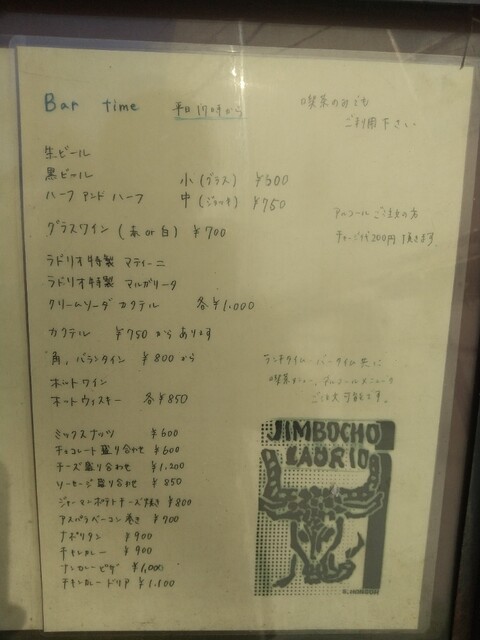 Bar time 平日17時から
喫茶のみでも
ご利用下さい
生ビール
黒ビール
ハーフ アンド ハーフ
小 (グラス) ¥500
中 (ジョッキ) ¥750
グラスワイン (赤 or 白) ¥700
アルコール ご注文の方
チャージ代200円 頂きます
ラドリオ特製 マティーニ
ラドリオ特製 マルガリータ
クリームソーダ カクテル 各¥1,000
カクテル ¥750 から あります
角, バランタイン ¥800 から
ホットワイン
ホットウィスキー 各¥850
ランチタイム・バータイム 共に
喫茶メニュー、アルコールメニュー
ご注文可能です。
ミックスナッツ ¥600
チョコレート盛り合わせ ¥600
チーズ盛り合わせ ¥1,200
ソーセージ盛り合わせ ¥850
ジャーマンポテトチーズ焼き ¥800
アスパラベーコン巻き ¥700
ナポリタン ¥900
チキンカレー ¥900
ナンカレーピザ ¥1,000
チキンカレードリア ¥1,100
JIMBOCHO
LADRIO